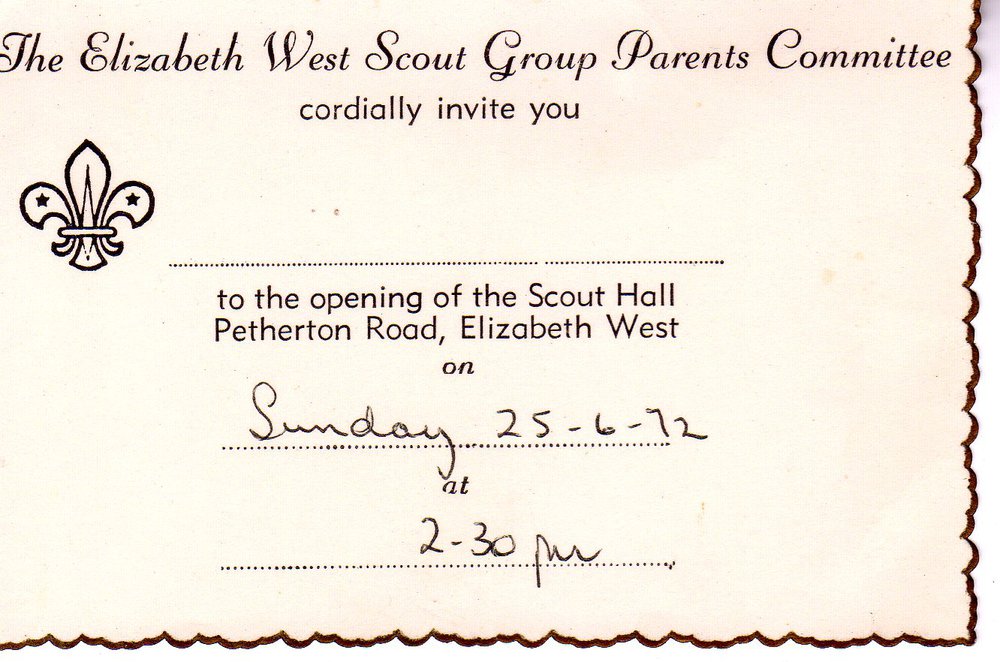 The Elizabeth West Scout Group Parents Committee
cordially invite you
to the opening of the Scout Hall
Petherton Road, Elizabeth West
on
Sunday 25-6-72
at
2-30 pm